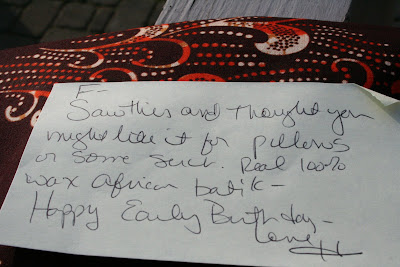 E-
Saw this and thought you
might like it for pillows
or some such. Real 100%
wax African batik-
Happy Early Birthday-
Love, H